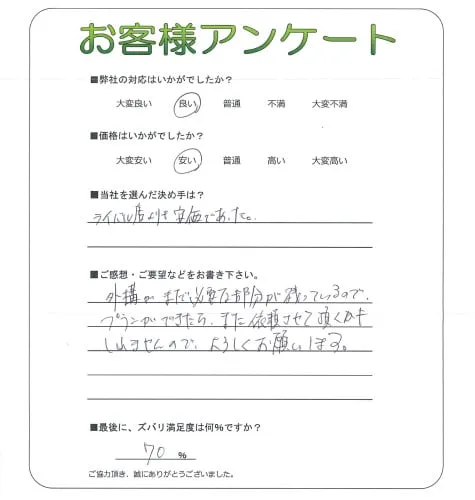 お客様アンケート
■弊社の対応はいかがでしたか？
大変良い 良い 普通 不満 大変不満
■価格はいかがでしたか？
大変安い 安い 普通 高い 大変高い
■当社を選んだ決め手は？
ライバル店よりも安価であった。
■ご感想・ご要望などをお書き下さい。
外構がまだ必要な部分が残っているので、
プランができたら、また依頼させて頂くかも
しれませんので、よろしくお願いします。
■最後に、ズバリ満足度は何％ですか？
70 ％
ご協力頂き、誠にありがとうございました。